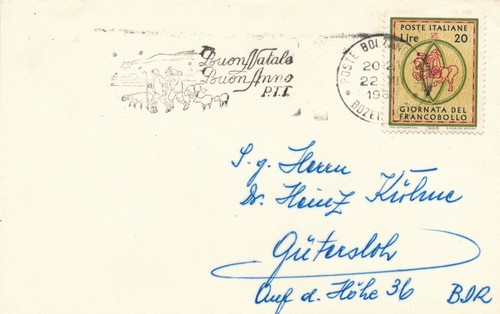 Buon Natale
Buon Anno
P.T.T.
POSTE BOLZANO
22
BOZEN
POSTE ITALIANE
Lire 20
GIORNATA DEL
FRANCOBOLLO
1966
S. g. Herrn
Dr. Heinz Köhne
Gütersloh
Auf d. Höhe 36 BDR